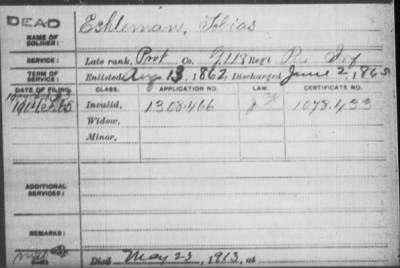 DEAD
NAME OF SOLDIER: Eshleman, Tobias
SERVICE: Late rank, Prvt Co. G, 118 Regt Pa. Inf
TERM OF SERVICE: Enlisted Aug 13, 1862, Discharged June 2, 1865
DATE OF FILING. CLASS. APPLICATION NO. LAW. CERTIFICATE NO.
1904 Feb 5 Invalid, 1308.466 1078.433
Widow,
Minor,
ADDITIONAL SERVICES:
REMARKS:
Died May 23, 1913, at